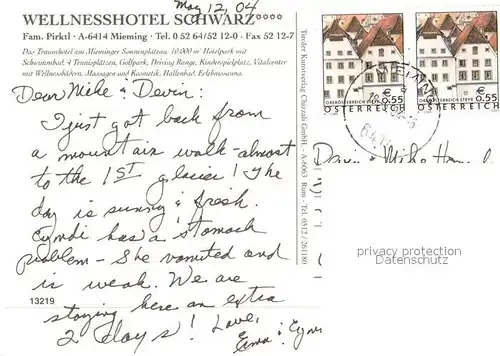 May 12, 04
WELLNESSHOTEL SCHWARZ****
Fam. Pirktl · A-6414 Mieming · Tel. 0 52 64/52 12-0 · Fax 52 12-7
Das Traumhotel am Mieminger Sonnenplateau, 10.000 m² Hotelpark mit
Schwimmbad, 4 Tennisplätzen, Golfpark, Driving Range, Kinderspielplatz, Vitalcenter
mit Wellnessbädern, Massagen und Kosmetik, Hallenbad, Erlebnissauna.
Dear Mike & Devin:
I just got back from
a mountain walk - almost
to the 1ST glacier! The
day is sunny & fresh.
Cyndi has a stomach
problem - She vomited and
is weak. We are
staying here an extra
2 days! Love,
13219
Tiroler Kunstverlag Chizzali GmbH. · A-6063 Rum · Tel. 0512/261180
OBERÖSTERREICH STEYR € 0,55
ÖSTERREICH
OBERÖSTERREICH STEYR € 0,55
ÖSTERREICH
Mike
privacy protection
Datenschutz